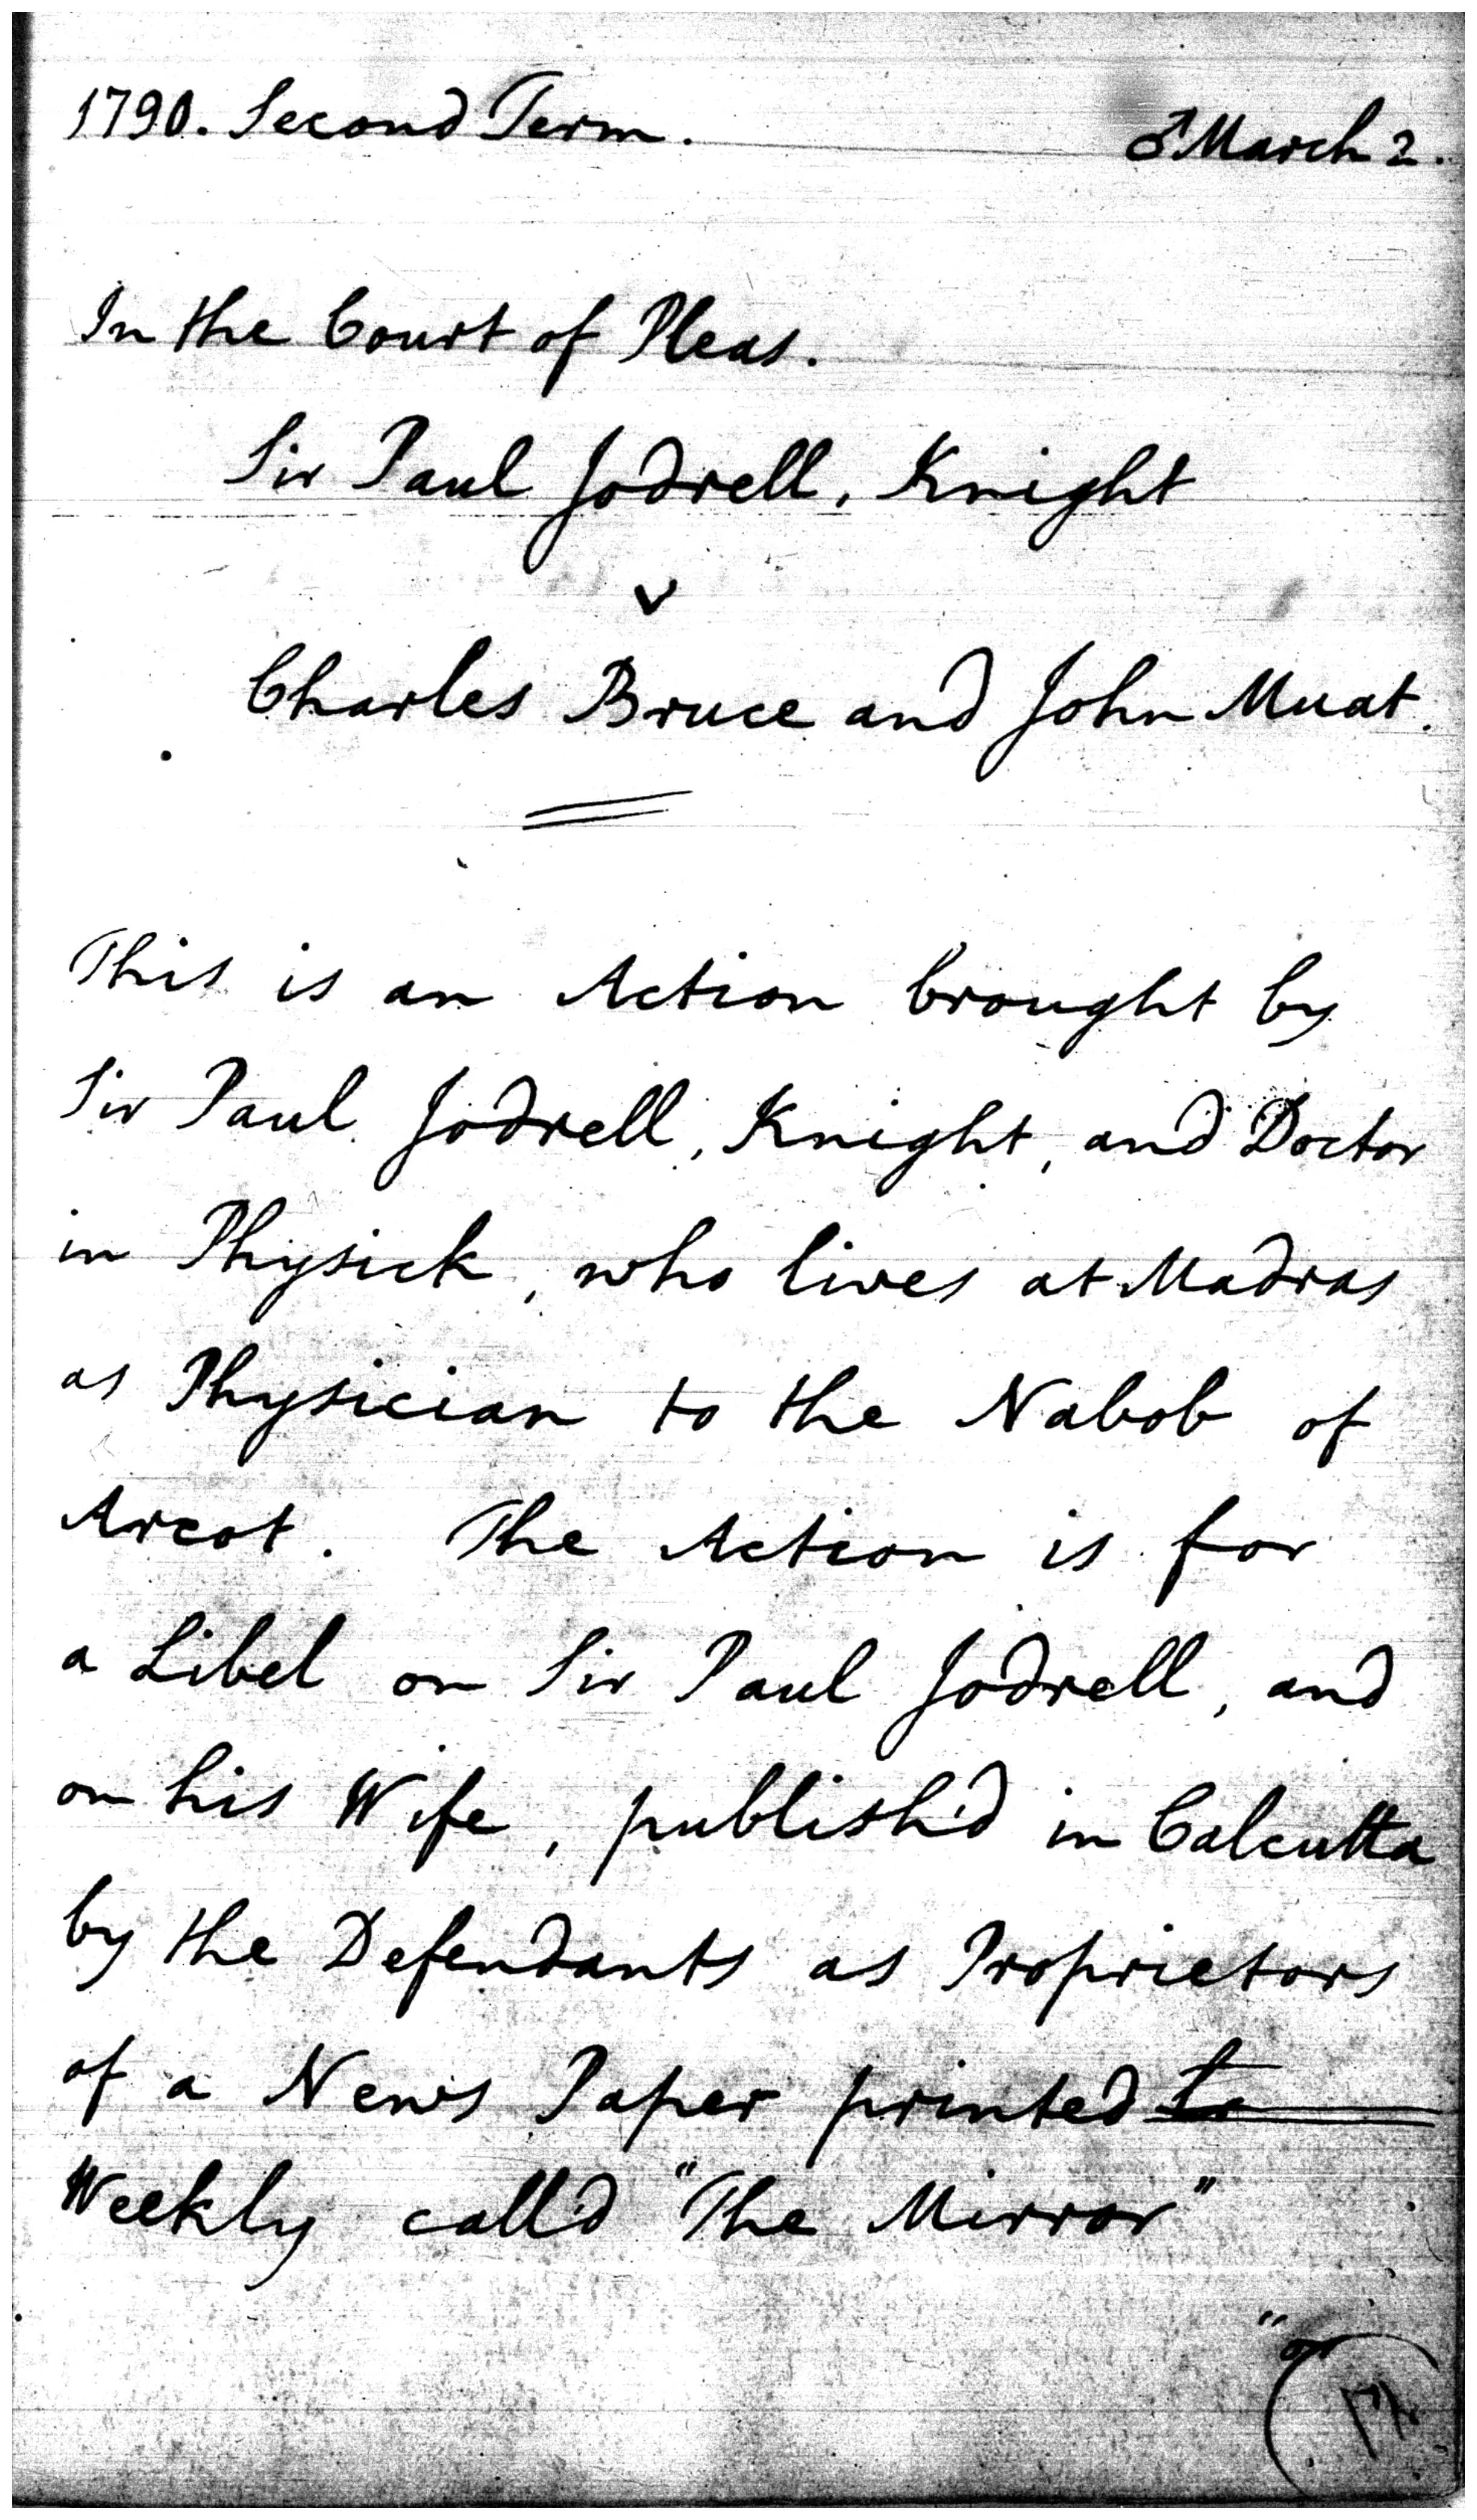 1790. Second Term. ♂ March 2.
In the Court of Pleas.
Sir Paul Jodrell, Knight
v
Charles Bruce and John Muat.
This is an Action brought by
Sir Paul Jodrell, Knight, and Doctor
in Physick, who lives at Madras
as Physician to the Nabob of
Arcot. The Action is for
a Libel on Sir Paul Jodrell, and
on his Wife, publish'd in Calcutta
by the Defendants as Proprietors
of a News Paper printed to
Weekly call'd "The Mirror"
"or